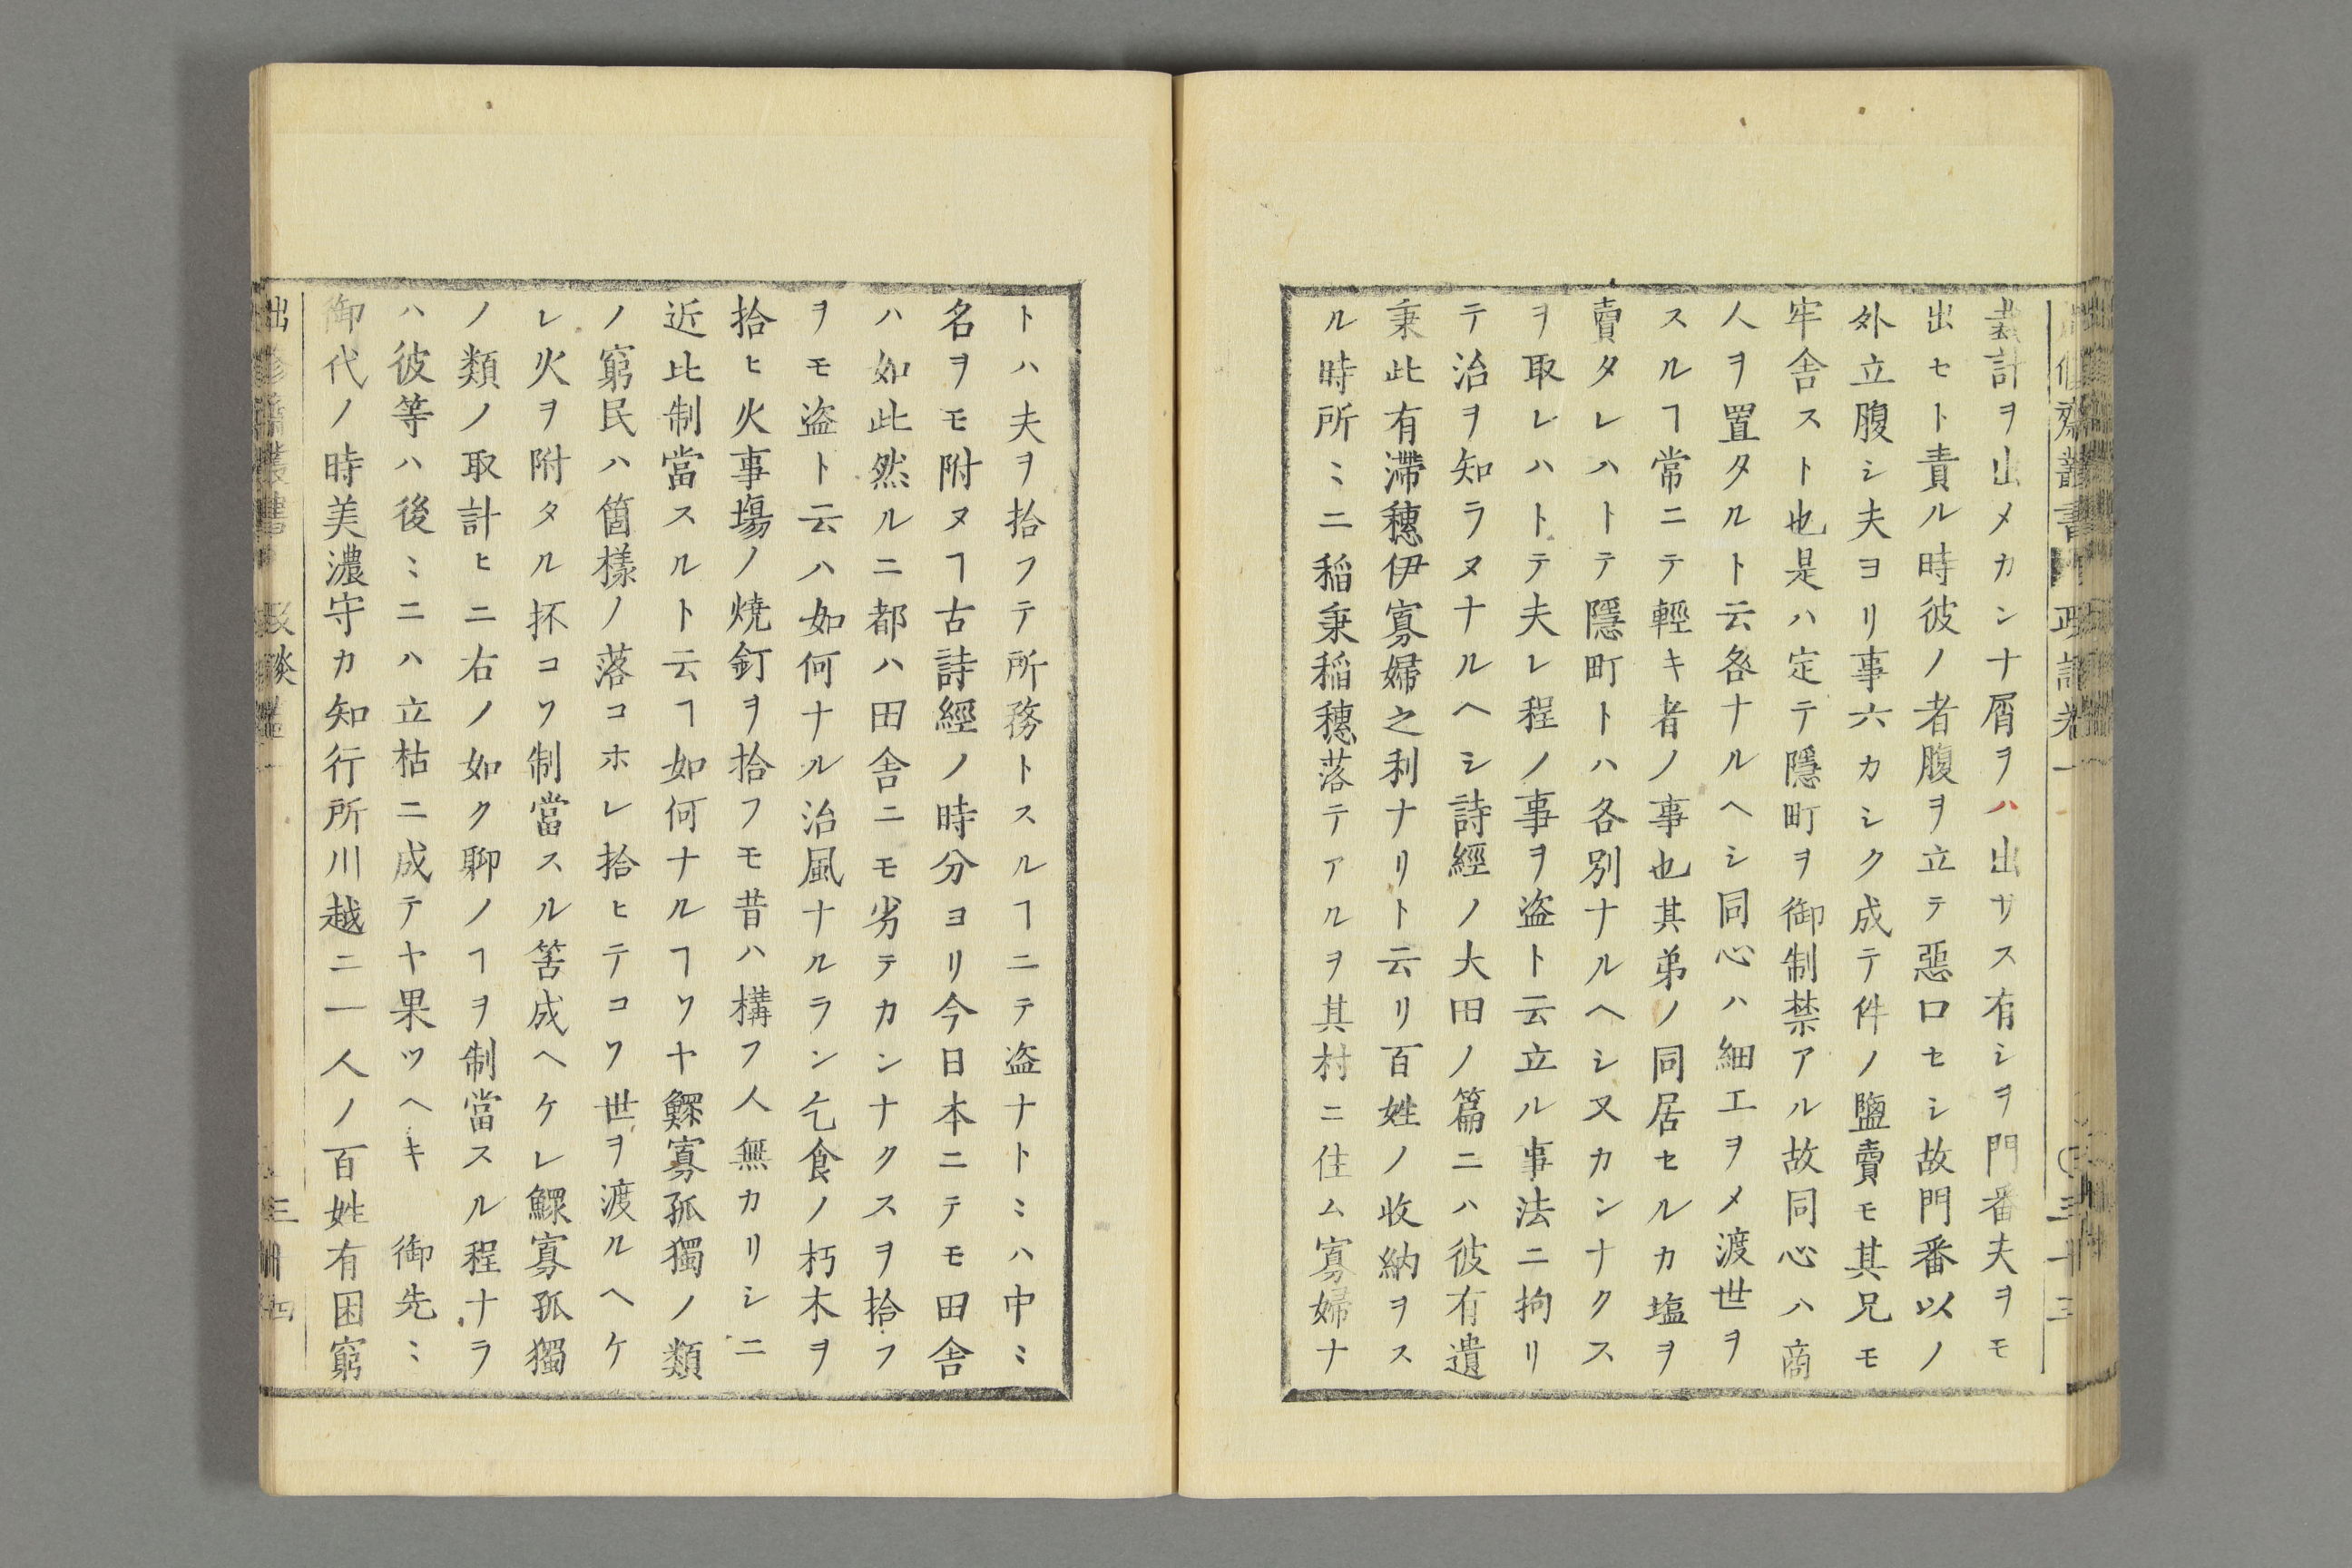 計ヲ出メカンナ屑ヲハ出サス有シヲ門番夫ヲモ
出セト責ル時彼ノ者腹ヲ立テ惡口セシ故門番以ノ
外立腹シ夫ヨリ事六カシク成テ件ノ鹽賣モ其兄モ
牢舎スト也是ハ定テ隱町ヲ御制禁アル故同心ハ商
人ヲ置タルト云咎ナルヘシ同心ハ細工ヲメ渡世ヲ
スルヿ常ニテ輕キ者ノ事也其弟ノ同居セルカ塩ヲ
賣タレハトテ隱町トハ各別ナルヘシ又カンナクス
ヲ取レハトテ夫レ程ノ事ヲ盗ト云立ル事法ニ拘リ
テ治ヲ知ラヌナルヘシ詩經ノ大田ノ篇ニハ彼有遺
秉此有滯穗伊寡婦之利ナリト云リ百姓ノ收納ヲス
ル時所〻ニ稲秉稲穗落テアルヲ其村ニ住ム寡婦ナ
トハ夫ヲ拾フテ所務トスルヿニテ盗ナト〻ハ中〻
名ヲモ附ヌヿ古詩經ノ時分ヨリ今日本ニテモ田舎
ハ如此然ルニ都ハ田舎ニモ劣テカンナクスヲ拾フ
ヲモ盗ト云ハ如何ナル治風ナルラン乞食ノ朽木ヲ
拾ヒ火事塲ノ焼釘ヲ拾フモ昔ハ構フ人無カリシニ
近比制當スルト云ヿ如何ナルヿソヤ鰥寡孤獨ノ類
ノ窮民ハ箇樣ノ落コホレ拾ヒテコソ世ヲ渡ルヘケ
レ火ヲ附タル抔コソ制當スル筈成ヘケレ鰥寡孤獨
ノ類ノ取計ヒニ右ノ如ク聊ノヿヲ制當スル程ナラ
ハ彼等ハ後〻ニハ立枯ニ成テヤ果ツヘキ　御先〻
御代ノ時美濃守カ知行所川越ニ一人ノ百姓有困窮